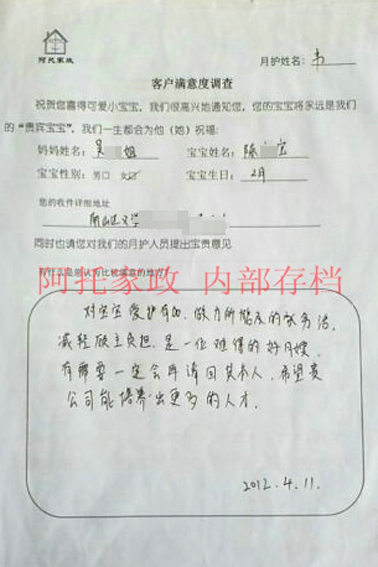 阿托家政
月护姓名：韦
客户满意度调查
祝贺您喜得可爱小宝宝，我们很高兴地通知您，您的宝宝将永远是我们
的“贵宾宝宝”，我们一生都会为他（她）祝福：
妈妈姓名：吴 姐 宝宝姓名：陈 宝
宝宝性别：男口 女 宝宝生日：2月
您的收件详细地址
同时也请您对我们的月护人员提出宝贵意见
有什么是您认为比较满意的地方？
阿托家政 内部存档
对宝宝爱护有加，做力所能及的家务活，
减轻雇主负担，是一位难得的好月嫂，
有需要一定会再请回其本人，希望贵
公司能培养出更多的人才．
2012.4.11.